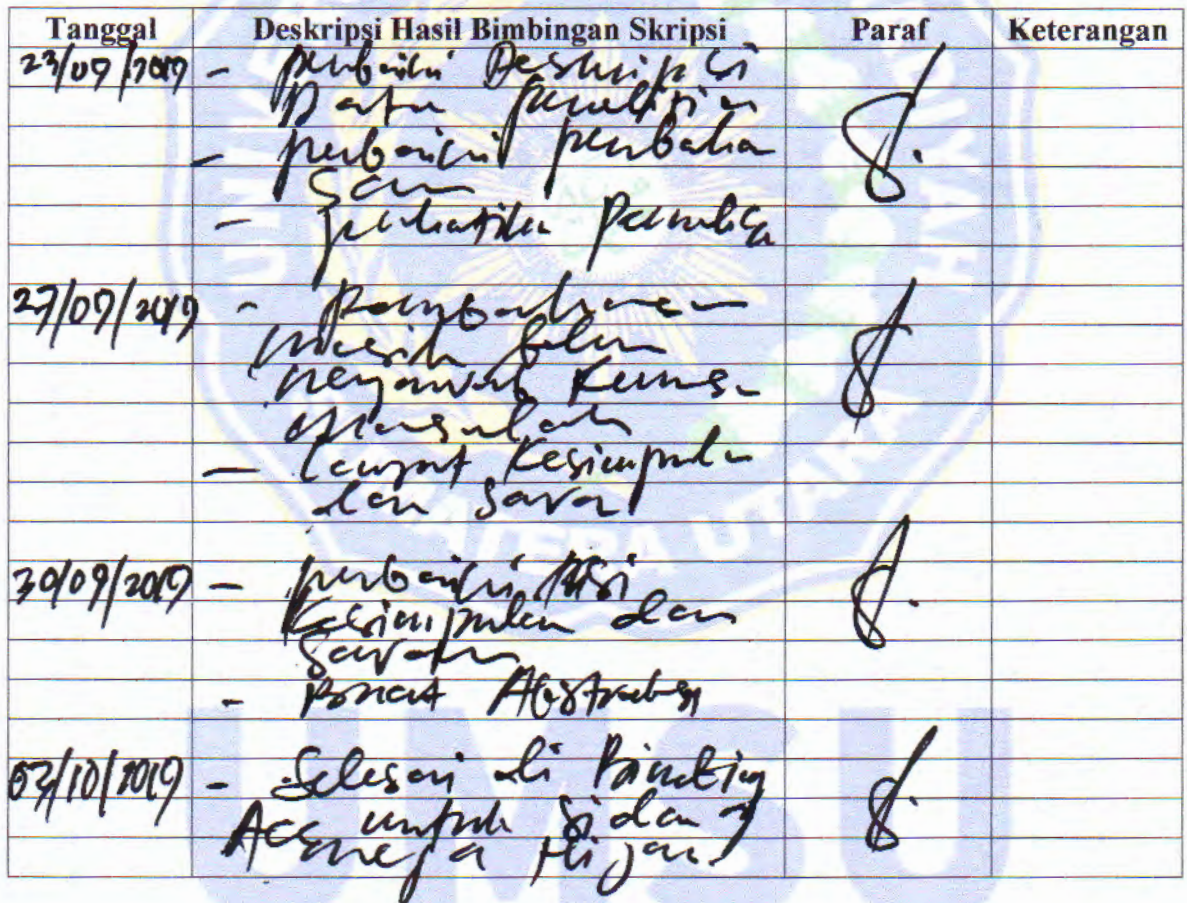 Tanggal Deskripsi Hasil Bimbingan Skripsi Paraf Keterangan
23/09/2019 - perbaiki Deskripsi
Data penelitian
- perbaiki pembaha
san
- perhatikan penulisa
27/09/2019 - Pembahasan
masih belum
menjawab rumusa
masalah
- Lanjut Kesimpula
dan Saran
30/09/2019 - perbaiki isi
Kesimpulan dan
Saran
- Buat Abstraknya
03/10/2019 - Selesai di Bimbing
Acc untuk Sidang
meja Hijau
UMSU